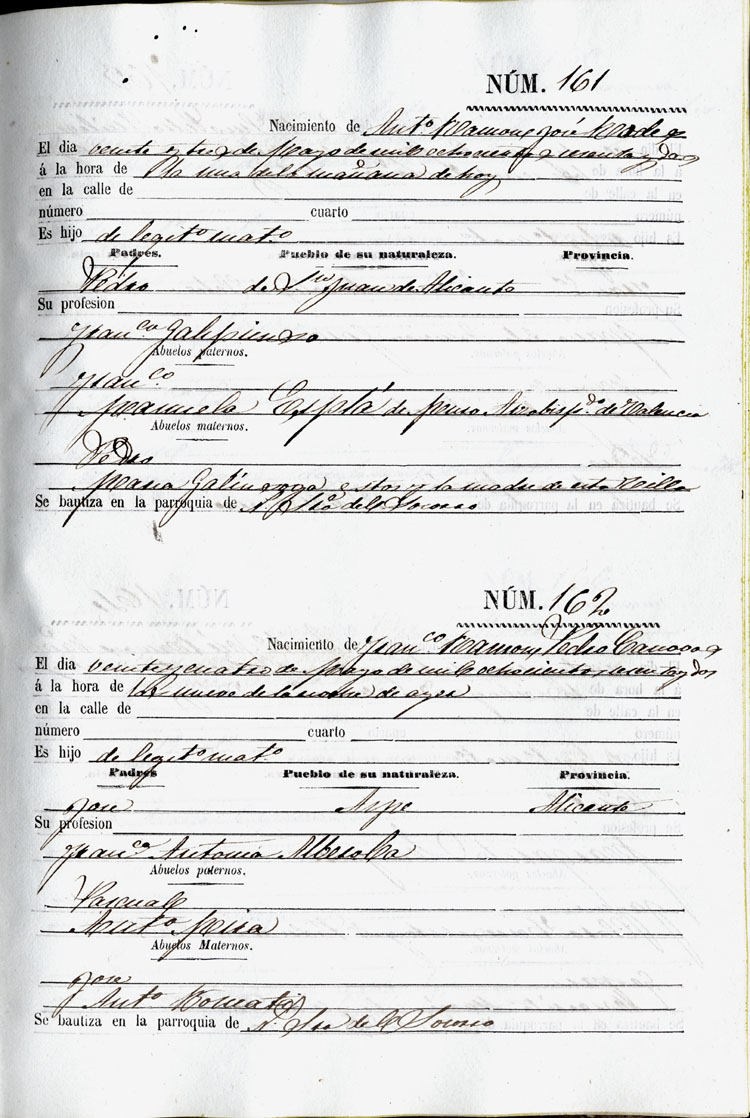 NÚM. 161
Nacimiento de Antº Ramon y José
El dia veinte y tres de Mayo de mil ochocientos sesenta y dos
á la hora de la una de la mañana de hoy
en la calle de
número cuarto
Es hijo de legitº matº
Padres. Pueblo de su naturaleza. Provincia.
Pedro de Sn Juan de Alicante
Su profesion
Francª Galipienso
Abuelos paternos.
Francº
Manuela Esplá de Arzobispdº de Valencia
Abuelos maternos.
Pedro
Maria estos y la madre de esta Villa
Se bautiza en la parroquia de N. Sra del Socorro
NÚM. 162
Nacimiento de Francº Ramon, Pedro Canova
El dia veinte y cuatro de Mayo de mil ochocientos sesenta y dos
á la hora de las nueve de la noche de ayer
en la calle de
número cuarto
Es hijo de legitº matº
Padres Pueblo de su naturaleza. Provincia.
Jose Aspe Alicante
Su profesion
Francª Antonia Alberola
Abuelos paternos.
Pascual
Antª Mira
Abuelos Maternos.
Jose
Antª
Se bautiza en la parroquia de N. Sra del Socorro